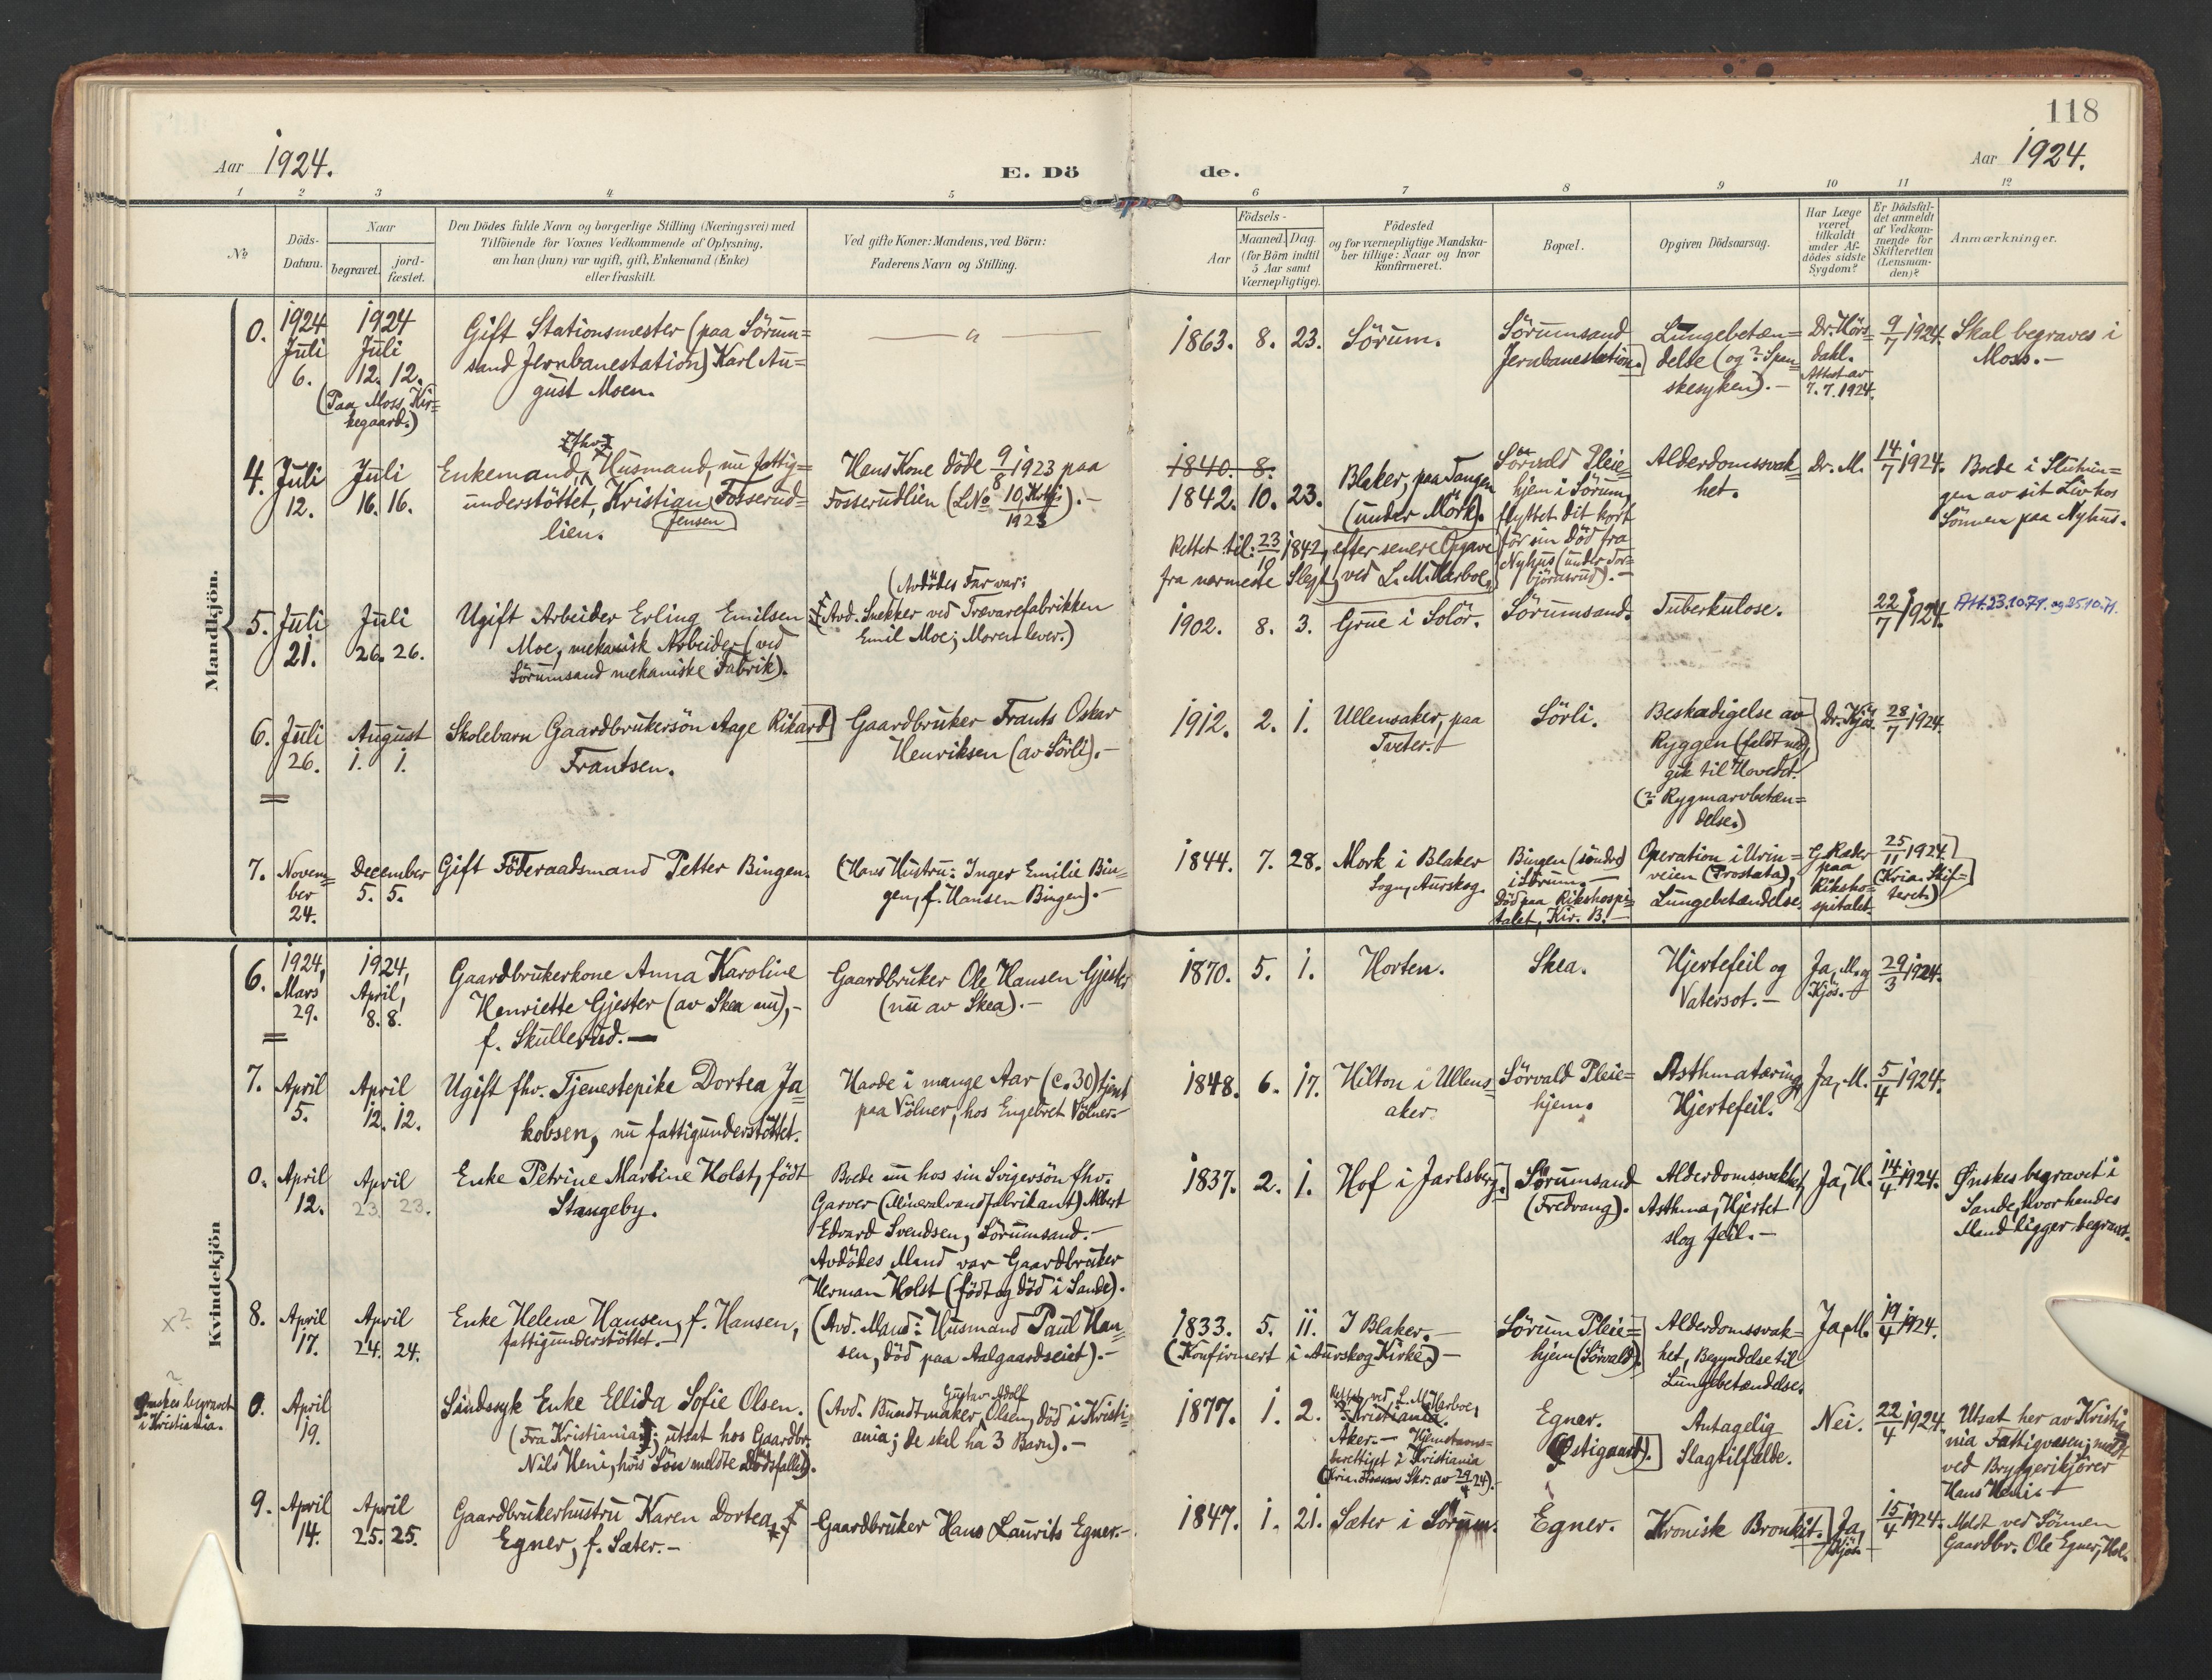 118
Aar 1924.
E. Dö de.
Aar 1924.
1 2 3 4 5 6 7 8 9 10 11 12
No
Döds-
Datum.
Naar
begravet.
jord-
fæstet.
Den Dödes fulde Navn og borgerlige Stilling (Næringsvei) med
Tilföiende for Voxnes Vedkommende af Oplysning,
om han (hun) var ugift, gift, Enkemand (Enke)
eller fraskilt.
Ved gifte Koner: Mandens, ved Börn:
Faderens Navn og Stilling.
Födsels-
Aar
Maaned. Dag.
(for Börn indtil
5 Aar samt
Værnepligtige).
Födested
og for værnepligtige Mandska-
ber tillige: Naar og hvor
konfirmeret.
Bopæl.
Opgiven Dödsaarsag.
Har Læge
været
tilkaldt
under Af-
dödes sidste
Sygdom?
Er Dödsfal-
det anmeldt
af Vedkom-
mende for
Skifteretten
(Lensman-
den)?
Anmærkninger.
Mandkjön.
0.
1924
Juli
6.
1924
Juli
12. 12.
(Paa Moss Kir=
kegaard.)
Gift Stationsmester (paa Sörum=
sand Jernbanestation) Karl Au=
gust Moen.
— " —
1863. 8. 23.
Sörum.
Sörumsand
Jernbanestation.
Lungebetæn=
delse (og ? Span=
skesyken). —
Dr. Hörs=
dahl.
Attest av
7. 7. 1924.
9/7 1924.
Skal begraves i
Moss. —
4.
Juli
12.
Juli
16. 16.
fhv.
Enkemand, Husmand, nu fattig=
understöttet, Kristian Fosserud=
Jensen
lien.
Hans Kone döde 9/8 1923 paa
Fosserudlien (LNo 10, 1923). —
1840. 8.
1842. 10. 23.
Blaker, paa Tangen
(under Mörk).
Rettet til: 23/10 1842, efter senere Opgave
fra nærmeste Slegt, ved L. M. Harboe.
Sörvald Pleie=
hjem i Sörum,
flyttet dit kort
för sin Död fra
Nyhus (under Tor=
björnsrud). —
Alderdomssvak=
het.
Dr. M.
14/7 1924.
Boede i Slutnin=
gen av sit Liv hos
Sönnen paa Nyhus.
5.
Juli
21.
Juli
26. 26.
Ugift Arbeider Erling Emilsen
Moe, mekanisk Arbeider (ved
Sörumsand mekaniske Fabrik).
(Avdödes Far var:
Avd. Snekker ved Trævarefabrikken
Emil Moe; Moren lever.)
1902. 8. 3.
Grue i Solör.
Sörumsand.
Tuberkulose.
22/7 1924.
Att. 23.10.71. og 25.10.71.
6.
Juli
26.
August
1. 1.
Skolebarn Gaardbrukersön Aage Rikard
Frantsen.
Gaardbruker Frants Oskar
Henriksen (av Sörli). —
1912. 2. 1.
Ullensaker, paa
Tveter. —
Sörli.
Beskadigelse av
Ryggen (faldt ned),
gik til Hovedet.
(? Rygmarvbetæn=
delse.)
Dr. Kjös.
28/7 1924.
7.
Novem=
ber
24.
December
5. 5.
Gift Föderaadsmand Petter Bingen.
(Hans Hustru: Inger Emilie Bin=
gen, f. Hansen Bingen). —
1844. 7. 28.
Mork i Blaker
Sogn, Aurskog.
Bingen (söndre)
i Sörum. —
Död paa Rikshospi=
talet, Kir. B. —
Operation i Urin=
veien (Prostata),
Lungebetændelse.
G. Ræder
paa
Riksho=
spitalet.
25/11 1924
(Kria. Skif=
teret.)
Kvindekjön
6.
1924,
Mars
29.
1924,
April,
8. 8.
Gaardbrukerkone Anna Karoline
Henriette Gjester (av Skea nu), —
f. Skullerud. —
Gaardbruker Ole Hansen Gjester
(nu av Skea). —
1870. 5. 1.
Horten.
Skea.
Hjertefeil og
Vatersot. —
Ja, M. og
Kjös. —
29/3 1924.
7.
April
5.
April
12. 12.
Ugift fhv. Tjenestepike Dortea Ja=
kobsen, nu fattigunderstöttet.
Havde i mange Aar (c. 30) tjent
paa Völner, hos Engebret Völner. —
1848. 6. 17.
Hilton i Ullens=
aker.
Sörvald Pleie=
hjem.
Asthmatæring,
Hjertefeil.
Ja, M.
5/4 1924.
0.
April
12.
April
23. 23.
Enke Petrine Martine Holst, födt
Stangeby.
Boede nu hos sin Svigersön fhv.
Garver (Mineralvandfabrikant) Albert
Edvard Svendsen, Sörumsand. —
Avdödes Mand var Gaardbruker
Herman Holst (födt og död i Sande).
1837. 2. 1.
Hof i Jarlsberg.
Sörumsand
(Fredvang).
Alderdomssvakhet,
Asthma, Hjertet
slog feil. —
Ja, M.
14/4 1924.
Ønskes begravet i
Sande, hvor hendes
Mand ligger begravet.
x?
8.
April
17.
April
24. 24.
Enke Helene Hansen, f. Hansen,
fattigunderstöttet. —
(Avd. Mand: Husmand Paul Han=
sen, död paa Aalgaardseiet). —
1833. 5. 11.
I Blaker. —
(Konfirmert i Aurskog Kirke.) —
Sörum Pleie=
hjem (Sörvald).
Alderdomssvak=
het, Begyndelse til
Lungebetændelse.
Ja, M.
19/4 1924.
Ønskes begravet
i Kristiania.
0.
April
19.
Sindssyk Enke Ellida Sofie Olsen.
(Fra Kristiania); utsat hos Gaardbr.
Nils Heni, hvis Sön meldte Dödsfallet).
Gustav Adolf
(Avd. Bundtmaker Olsen, död i Kristi=
ania; de skal ha 3 Barn). —
1877. 1. 2.
Rettet ved L. M. Harboe,
? Kristiania.
Aker. — Hjemstavns=
berettiget i Kristiania
Egner.
(Østigaard).
Antagelig
Slagtilfælde.
Nei.
22/4 1924.
Utsat her av Kristia
nia Fattigvæsen; meldt
ved Bryggerikjörer
Hans Heni. —
9.
April
14.
April
25. 25.
Gaardbrukerhustru Karen Dortea
Egner, f. Sæter. —
Gaardbruker Hans Laurits Egner. —
1847. 1. 21.
Sæter i Sörum.
Egner.
Kronisk Bronkit.
Ja,
Kjös.
15/4 1924.
Meldt ved Sönnen
Gaardbr. Ole Egner,